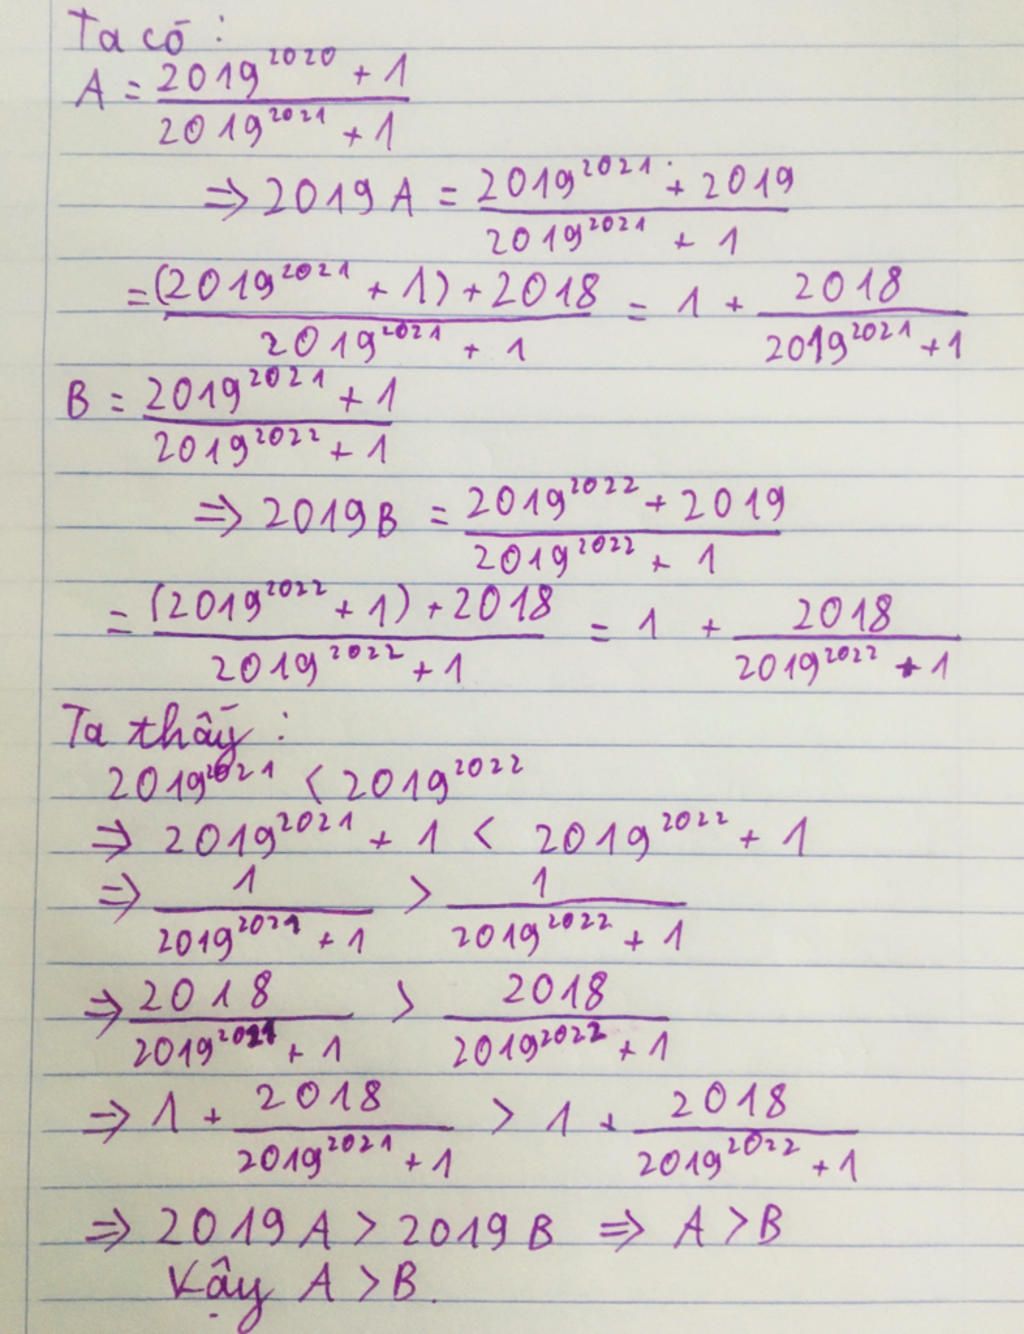 Ta có :
A = \frac{2019^{2020} + 1}{2019^{2021} + 1}
⇒ 2019 A = \frac{2019^{2021} + 2019}{2019^{2021} + 1}
= \frac{(2019^{2021} + 1) + 2018}{2019^{2021} + 1} = 1 + \frac{2018}{2019^{2021} + 1}
B = \frac{2019^{2021} + 1}{2019^{2022} + 1}
⇒ 2019 B = \frac{2019^{2022} + 2019}{2019^{2022} + 1}
= \frac{(2019^{2022} + 1) + 2018}{2019^{2022} + 1} = 1 + \frac{2018}{2019^{2022} + 1}
Ta thấy :
2019^{2021} < 2019^{2022}
⇒ 2019^{2021} + 1 < 2019^{2022} + 1
⇒ \frac{1}{2019^{2021} + 1} > \frac{1}{2019^{2022} + 1}
⇒ \frac{2018}{2019^{2021} + 1} > \frac{2018}{2019^{2022} + 1}
⇒ 1 + \frac{2018}{2019^{2021} + 1} > 1 + \frac{2018}{2019^{2022} + 1}
⇒ 2019 A > 2019 B ⇒ A > B
Vậy A > B.